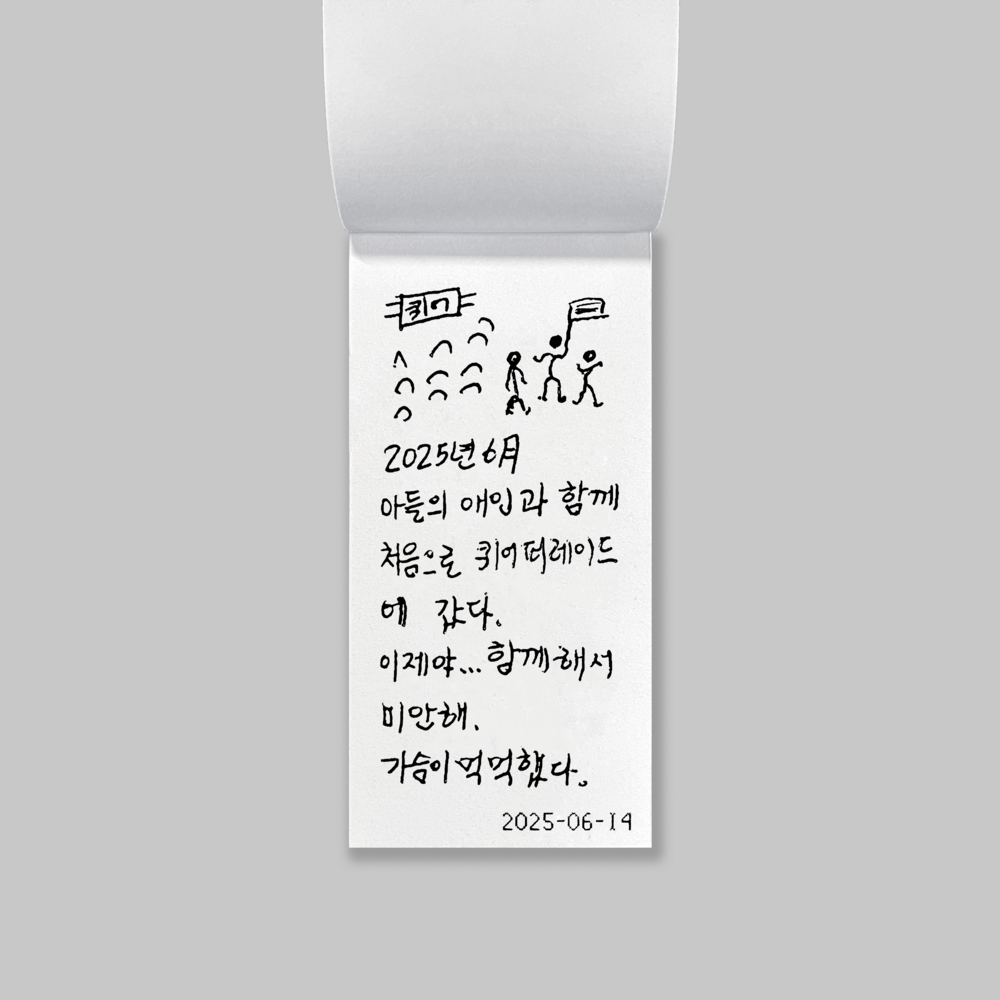 퀴어
2025년 6月
아들의 애인과 함께
처음으로 퀴어퍼레이드
에 갔다.
이제야...함께해서
미안해.
가슴이 먹먹했다。
2025-06-14